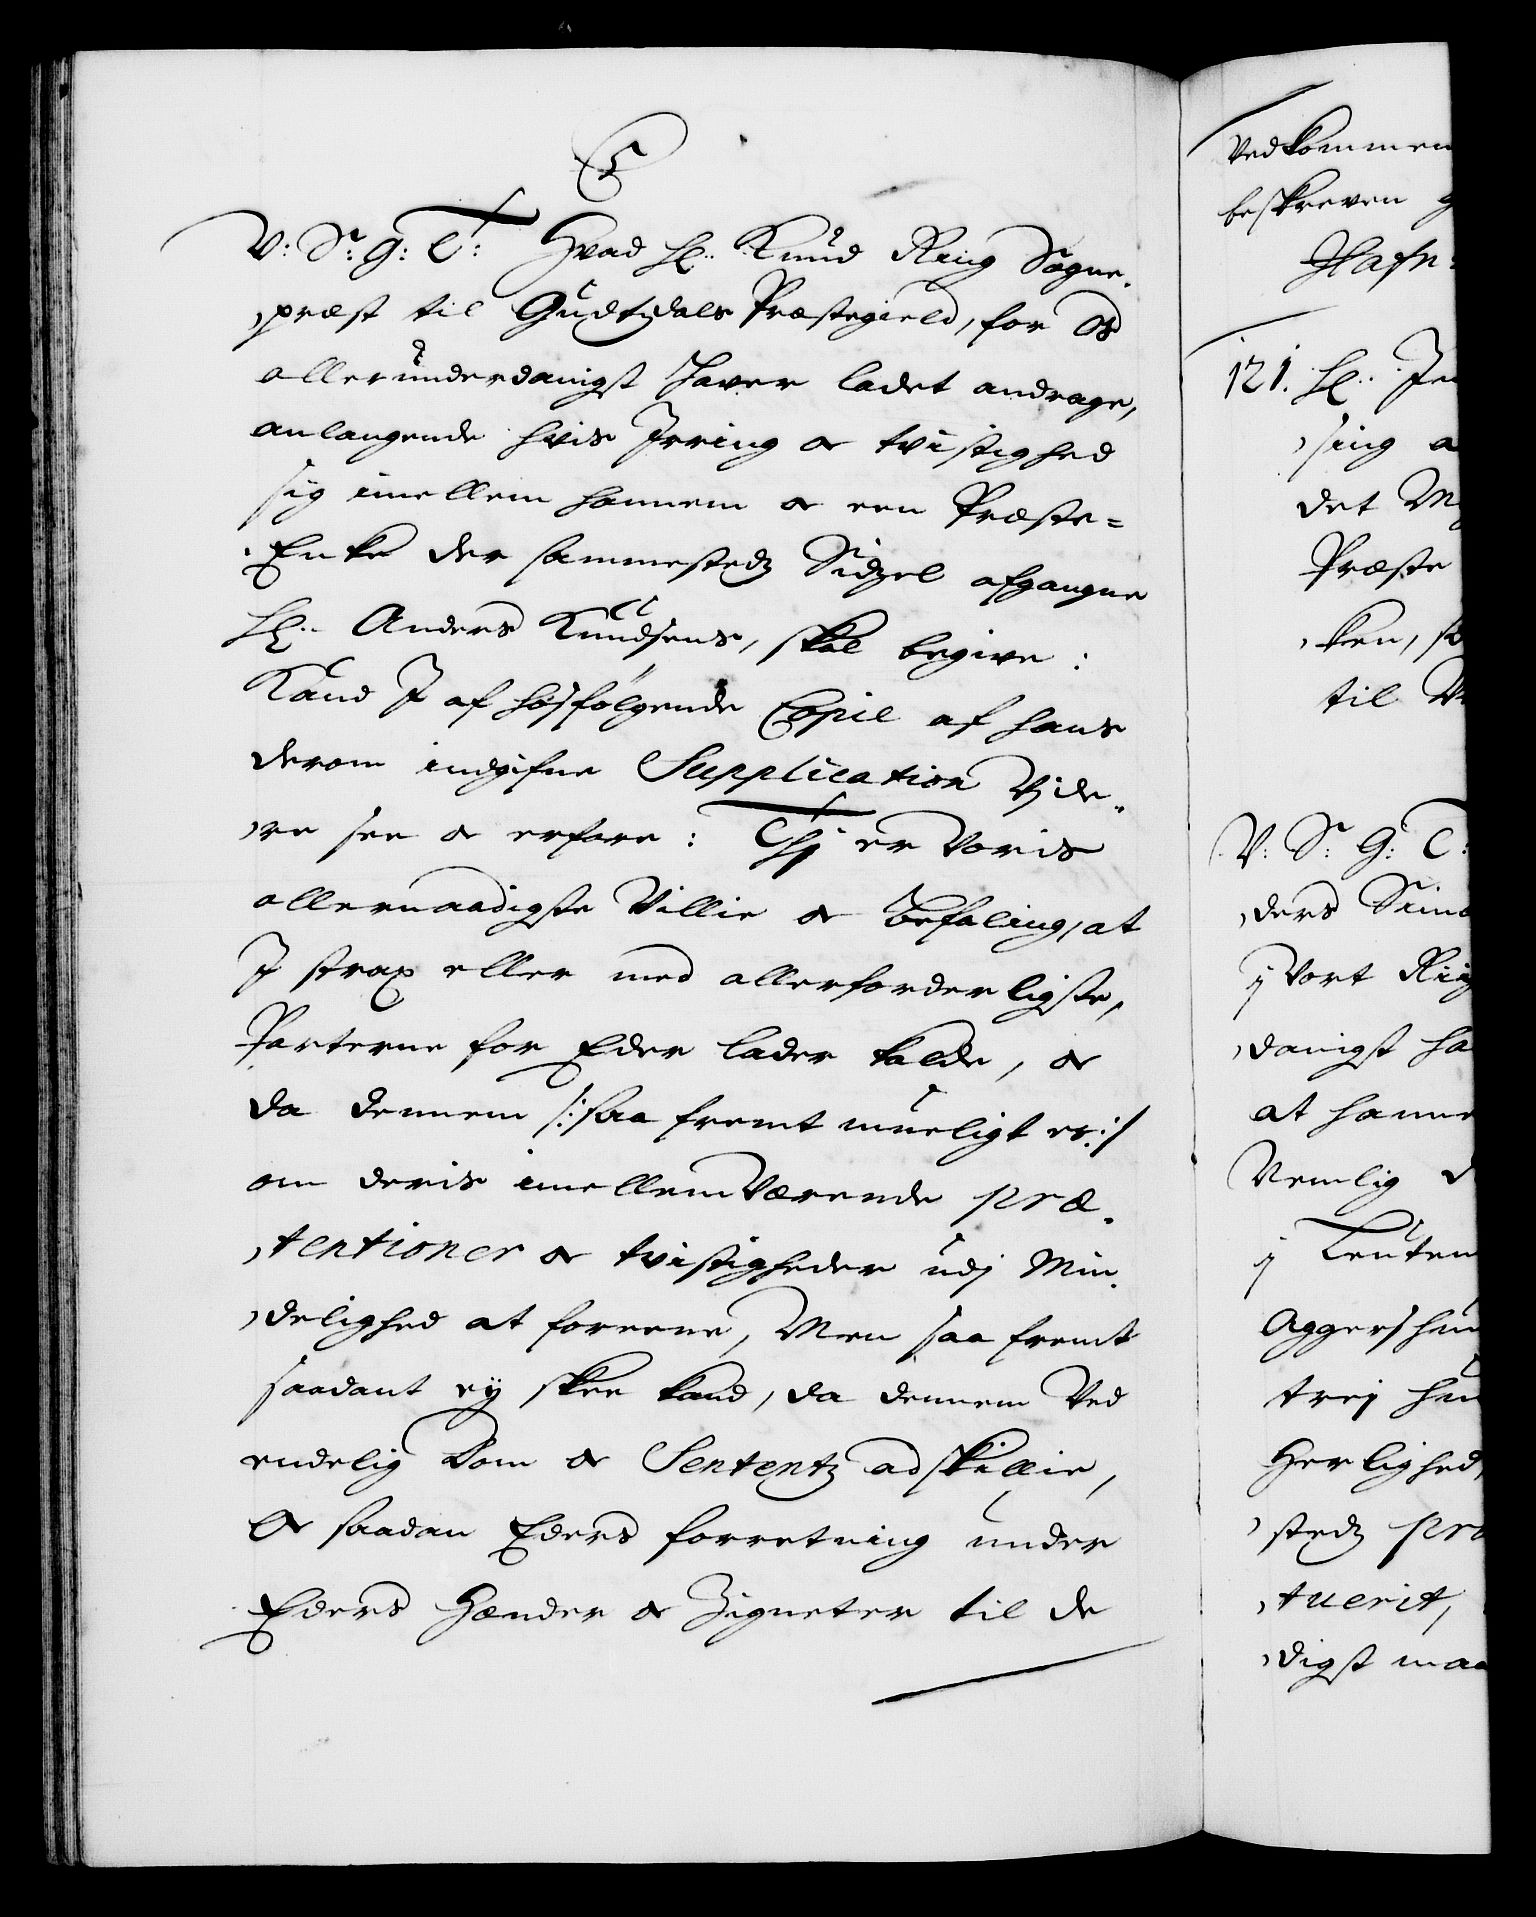 V: S: G: T: Hvad H: Knud Ring Sogne-
præst til Gudtzdals Præstegield, for Os
allerunderdanigst haver ladet andrage,
anlangende hvis Irring og tvistighed
sig imellem hannem og een Præste-
Enke der sammestedz Sidzel afgangne
H: Anders Knudsens, skal begive:
Kand I af hosfølgende Copie af hans
derom indgifne Supplication Vide-
re see og erfare: Thj er Voris
allernaadigste Villie og Befaling, at
I strax eller med allerforderligste,
Parterne for Eder lader kalde, og
da dennem /: saa fremt mueligt er :/
om deris imellemVærende præ-
tentioner og tvistigheder udj Min-
delighed at foreene, Men saa fremt
saadant ej skee kand, da dennem Ved
endelig Dom og Sententz adskillie,
Og saadan Eders forretning under
Eders Hænder og Zigneter til de
Vedkommen
beskreven
Hafn:
121. H: Jen
sing
det
Præste
ken,
til
V: S: G: T:
ders
j Vort Riig
danigst ha
at hanne
Nemlig
j Leuten
Aggershuu
trej
Herlighed,
stedz
tuerit,
digst maa